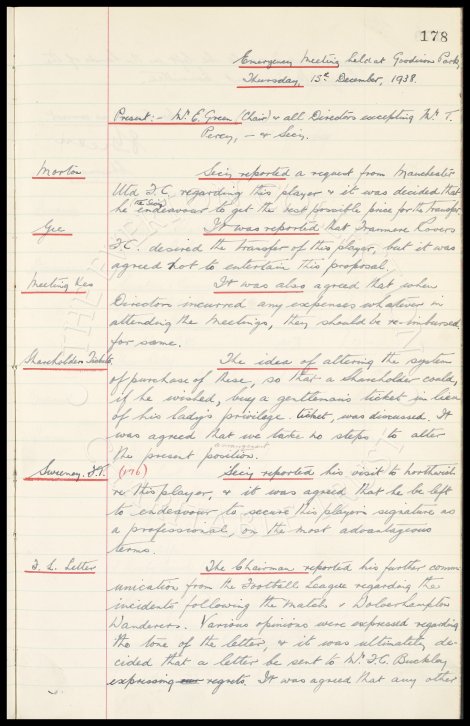 178
Emergency Meeting held at Goodison Park,
Thursday, 15th December, 1938.
Present:- Mr E. Green, (Chair) & all Directors excepting Mr T.
Percy, - & Secy.
Morton Secy reported a request from Manchester
Utd F.C. regarding this player & it was decided that
he the Secy endeavour to get the best possible price for the transfer
Gee It was reported that Tranmere Rovers
F.C. desired the transfer of this player, but it was
agreed not to entertain this proposal.
Meeting Res It was also agreed that when
Directors incurred any expenses whatever in
attending the Meetings, they should be re-imbursed
for same.
Shareholders Tickets The idea of altering the system
of purchase of these, so that a shareholder could,
if he wished, buy a gentleman's ticket in lieu
of his lady's privilege ticket, was discussed. It
was agreed that we take no steps to alter
the present position. arrangement
Sweeney. F.T. (176) Secy reported his visit to Northwich
re this player, & it was agreed that he be left
to endeavour to secure this player's signature as
a professional, on the most advantageous
terms.
F. L. Letter The Chairman reported his further comm-
unication from the Football League regarding the
incidents following the match v Wolverhampton
Wanderers. Various opinions were expressed regarding
the tone of the letter, & it was ultimately de-
cided that a letter be sent to Mr F.C. Buckley
expressing regrets. It was agreed that any other